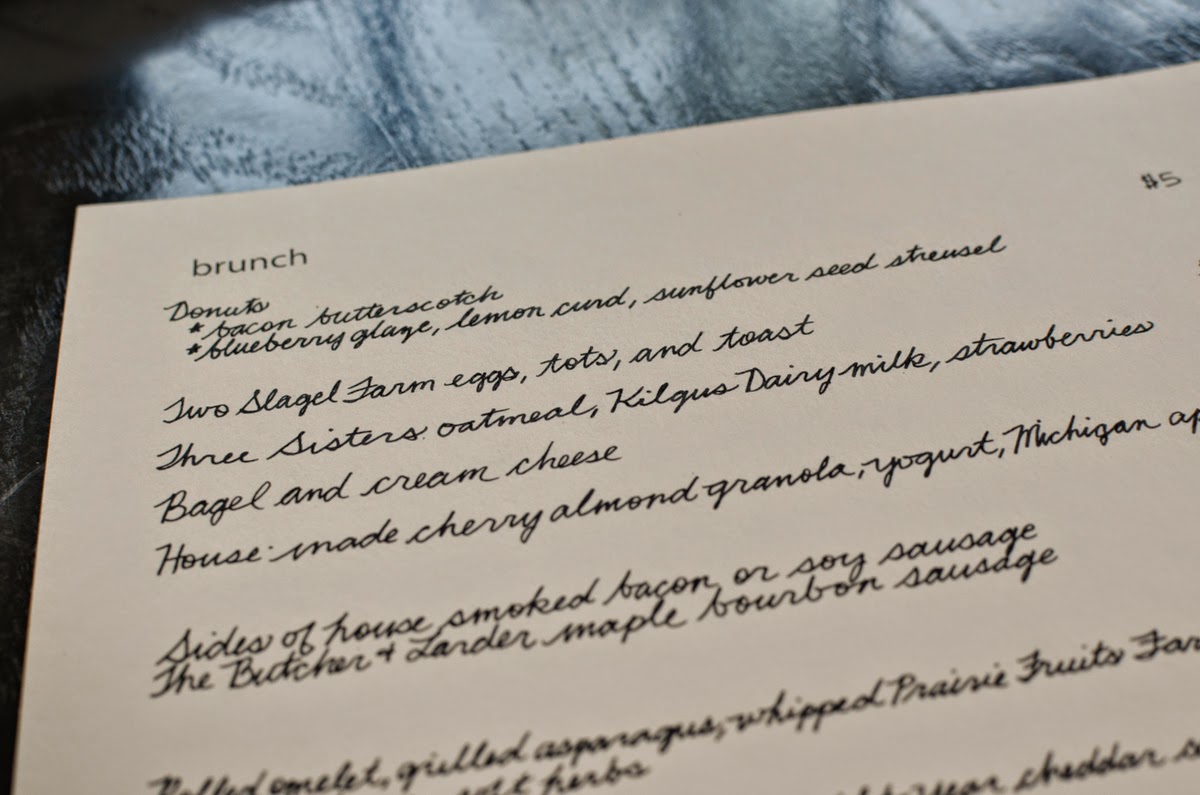 $5
brunch
Donuts
*bacon butterscotch
*blueberry glaze, lemon curd, sunflower seed streusel
Two Slagel Farm eggs, tots, and toast
Three Sisters oatmeal, Kilgus Dairy milk, strawberries
Bagel and cream cheese
House-made cherry almond granola, yogurt, Michigan
Sides of house smoked bacon or soy sausage
The Butcher & Larder maple bourbon sausage
Rolled omelet, grilled asparagus, whipped Prairie Fruits
soft herbs
year cheddar